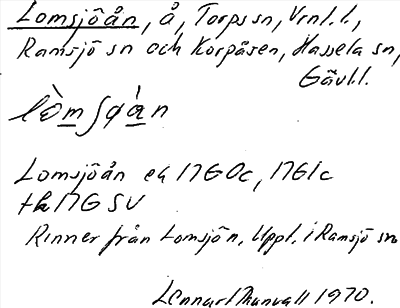 Lomsjöån, å, Torps sn, Vrnl.l.,
Ramsjö sn och Korpåsen, Hassela sn,
Gävl.l.
lòmʃɑ̀n
Lomsjöån ek 17GOc, 17GIc
tk 17G SV
Rinner från Lomsjön, Uppl. i Ramsjö sn
Lennart Thunvall 1970.